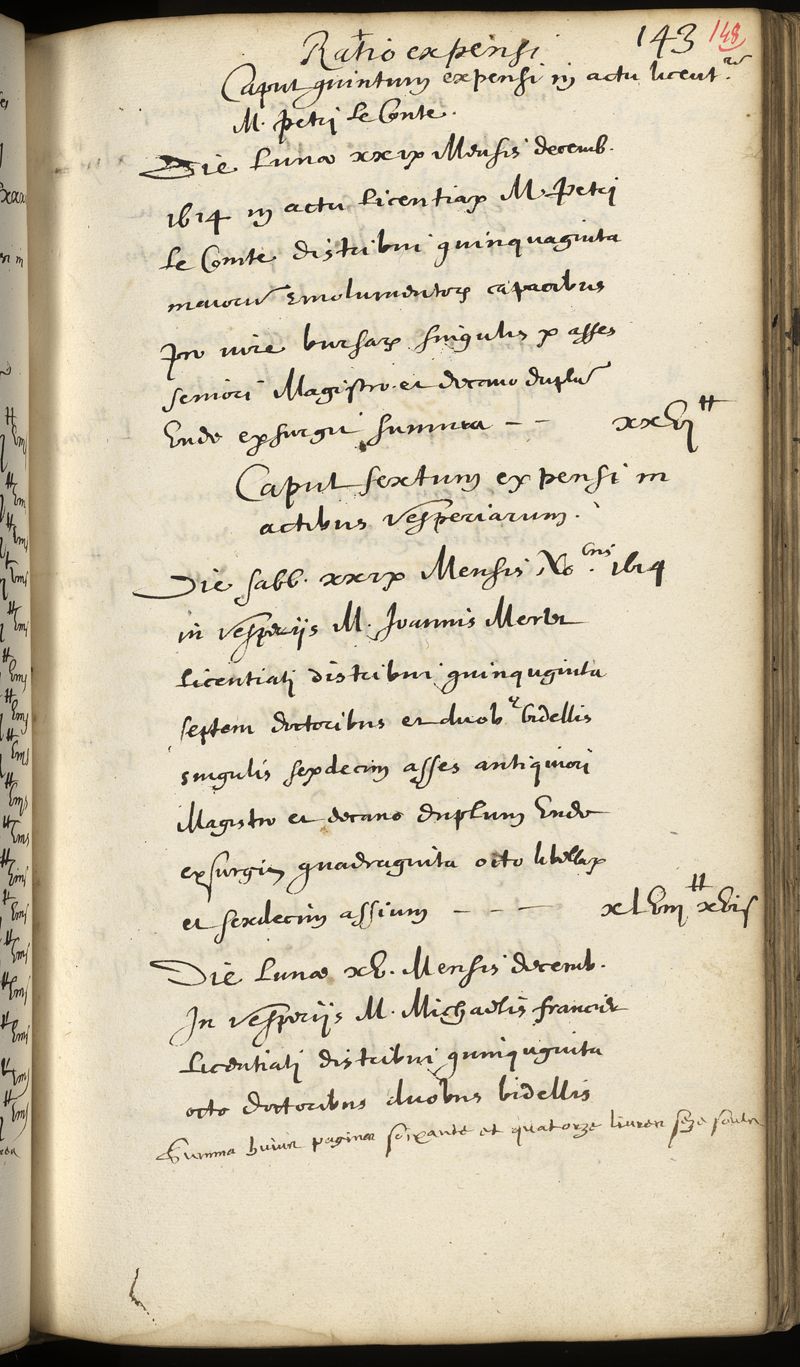 Ratio expensi 143 148
Caput quintum expensi in actu licent.
M. Petri le Conte.
Die Lunæ xxix Mensis decemb.
1614 in actu licentiæ M. Petri
le Comte distribui quinquaginta
maioru emolumentorũ capacibus
pro iure bursarũ singulis x asses
seniori Magistro et decano duplũ
Unde exsurgit summa - - xxvi ℔
Caput sextum expensi in
actibus vesperiarum.
Die sabb. xxix Mensis No.bris 1614
in vesperijs M. Joannis
licentiati distribui quinquginta
septem doctoribus et duob9 bidellis
singulis sexdecim asses antiquiori
Magistro et decano duplum Unde
exsurgit quadraginta octo
et sexdecim assium - - - xlviij ℔ xvis
Die Lunæ xv. Mensis decemb.
In vesperijs M. Michaelis
Licentiati distribui quinquginta
octo doctoribus duobus bidellis
Summa huius paginæ soixante et quatorze liures seze soulz